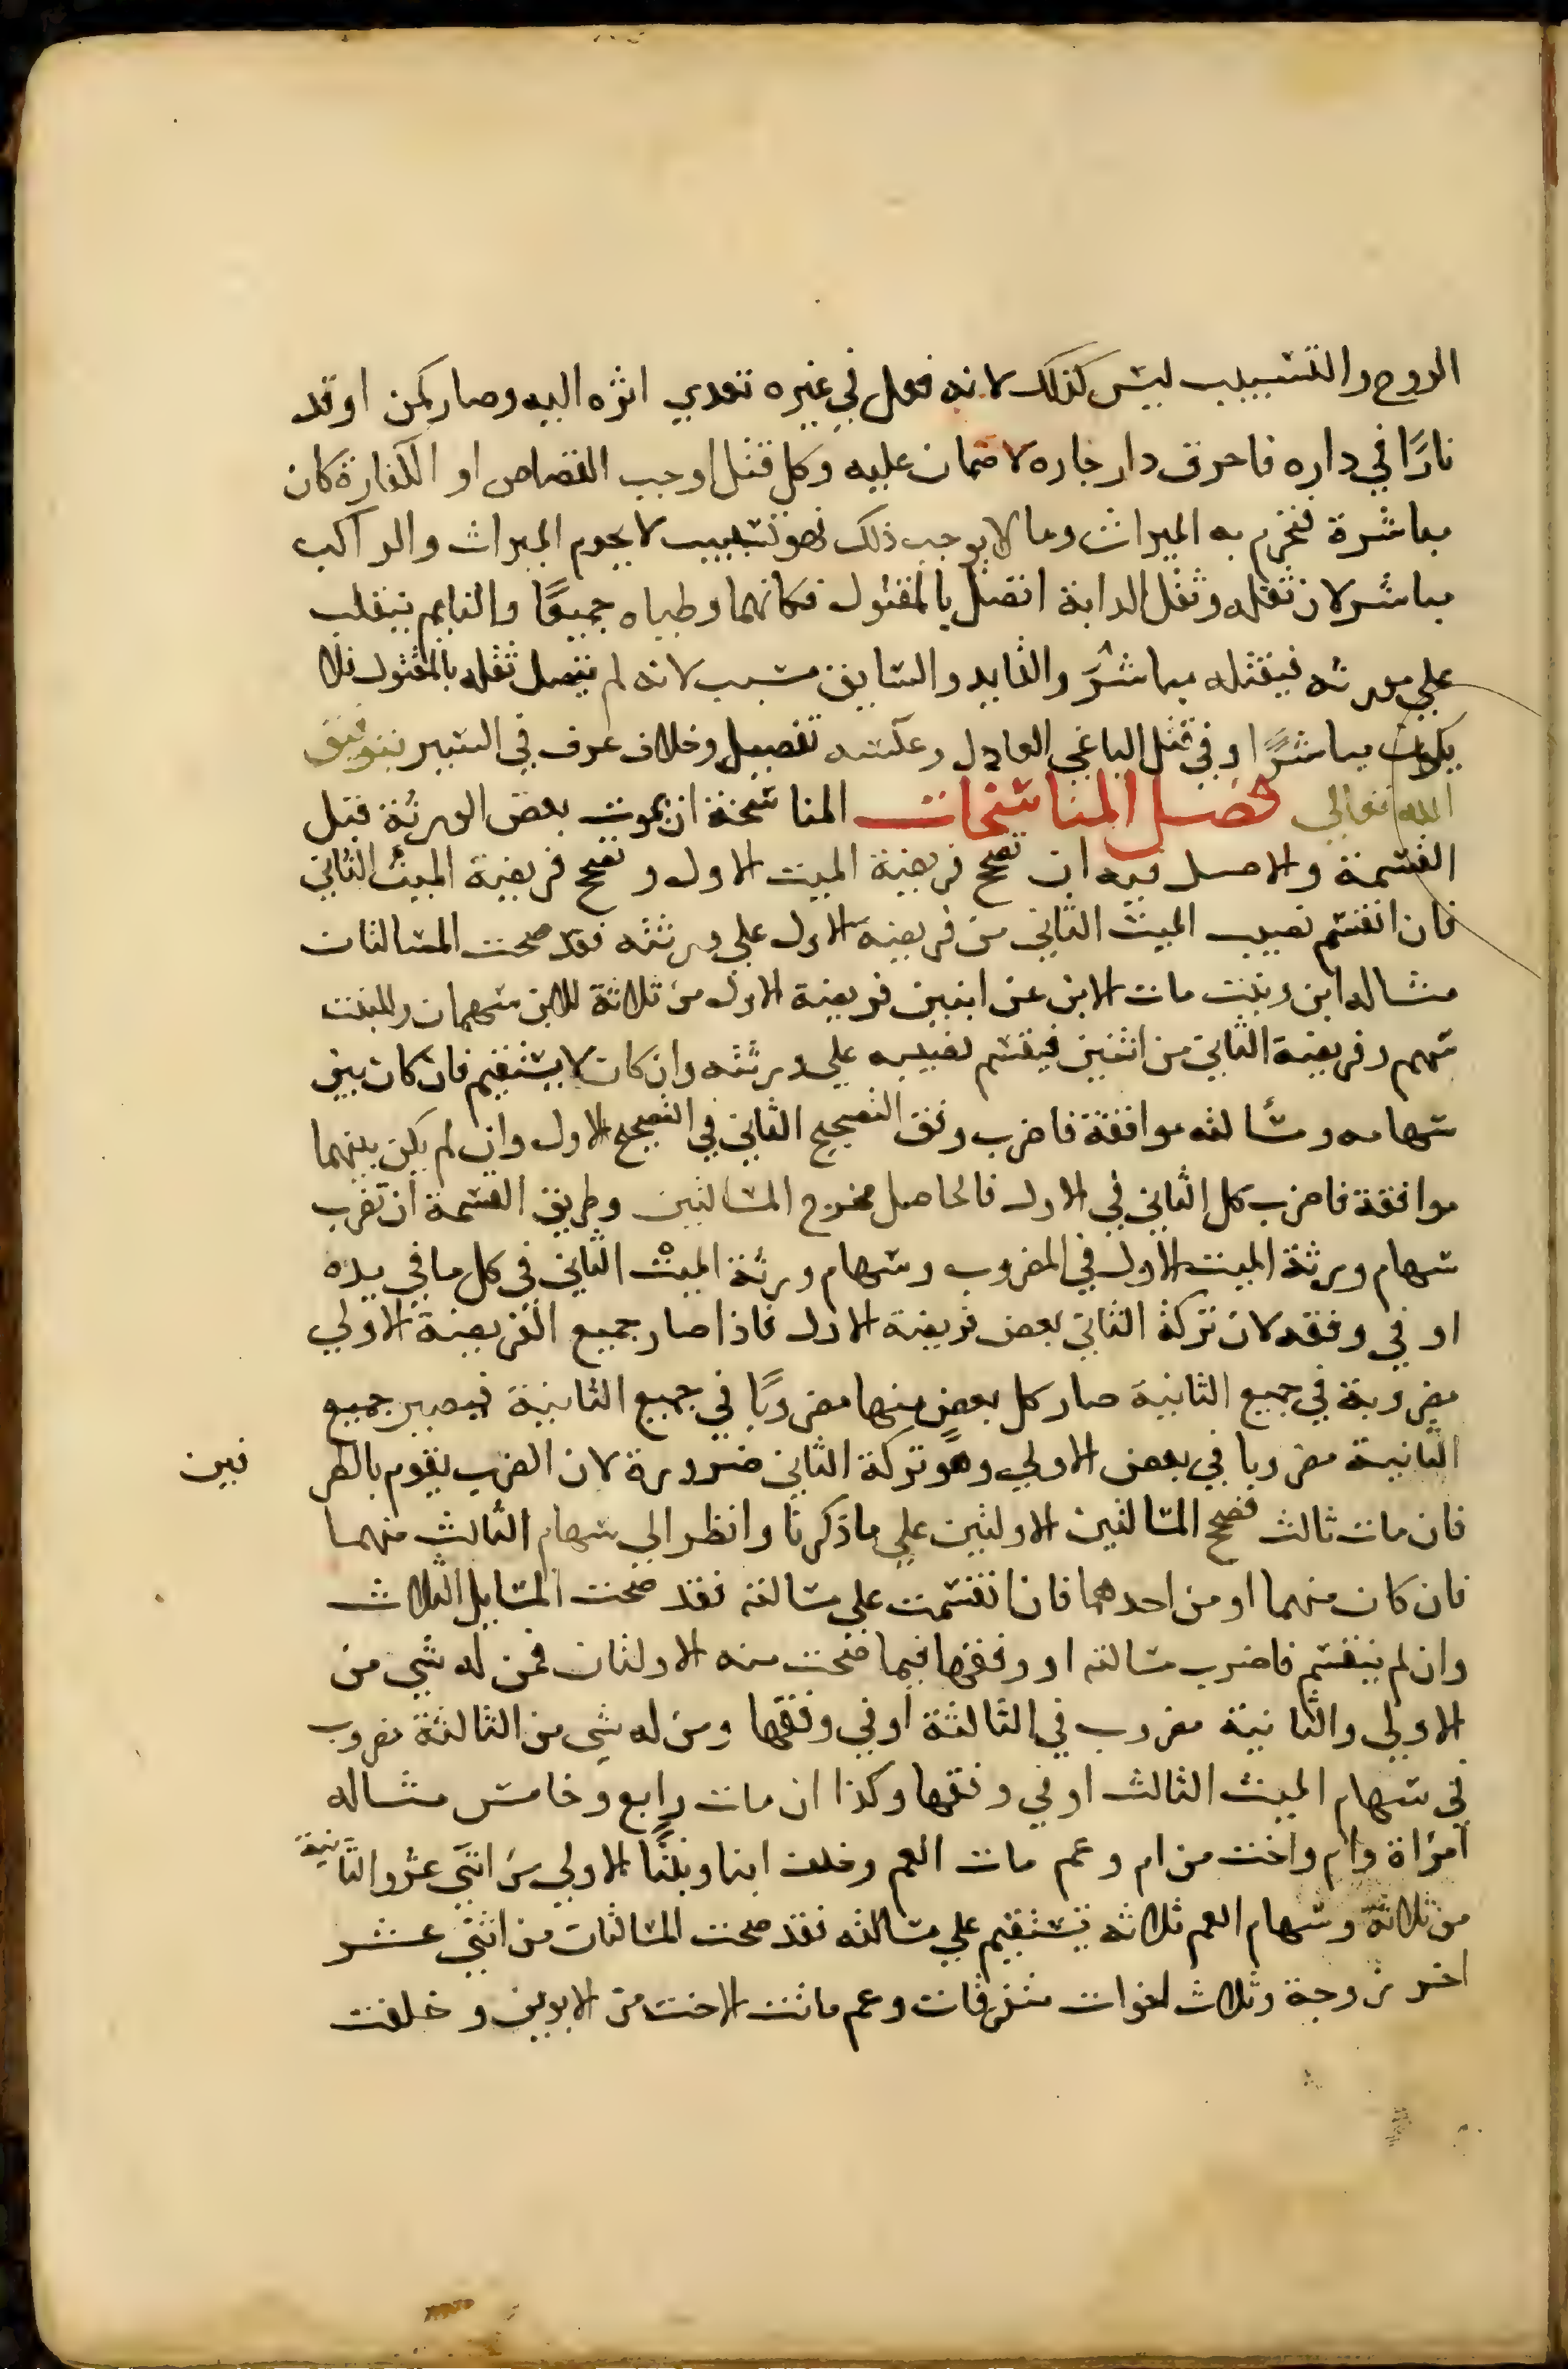 الروح والتسبيب ليس كذلك لانه فعل في غيره تعدي اثره اليه وصار كمن اوقد
نارًا في داره فاحرق دار جاره لا ضمان عليه وكل قتل اوجب القصاص او الكفارة كان
مباشرة فتحرم به الميراث وما لا يوجب ذلك فهو تسبيب لا يحرم الميراث والراكب
مباشر لان ثقله وثقل الدابة اتصل بالمقتول فكانهما وطياه جميعًا والنايم ينقلب
علي مورثه فيقتله مباشرَ والقايد والسايق مسبب لانه لم يتصل ثقله بالمقتول فلا
يكون مباشرًا وفي قتل الباغي العادل وعكسه تفصيل وخلاف عرف في السير بتوفيق
الله تعالي فصل المناسخات المناسخة ان يموت بعض الورثة قبل
القسمة والاصل فيه ان تصحح فريضة الميت الاول وتصحح فريضة الميت الثاني
فان انقسم نصيب الميت الثاني من فريضة الاول علي ورثته فقد صحت المسالتان
مثاله ابن وبنت مات الابن عن ابنين فريضة الاول من ثلاثة للابن سهمان وللبنت
سهم وفريضة الثاني من اثنين فيقسم نصيبه علي ورثته وان كان لا يستقيم فان كان بين
سهامه ومسالته موافقة فاضرب وفق التصحيح الثاني في التصحيح الاول وان لم يكن بينهما
موافقة فاضرب كل الثاني في الاول فالحاصل مخرج المسالتين وطريق القسمة ان تضرب
سهام ورثة الميت الاول في المضروب وسهام ورثة الميت الثاني في كل ما في يده
او في وفقه لان تركة الثاني بعض فريضة الاول فاذا صار جميع الفريضة الاولي
مضروبة في جميع الثانية صار كل بعض منها مضروبًا في جميع الثانية فيصير جميع
الثانية مضروبا في بعض الاولي وهو تركة الثاني ضرورة لان الضرب يقوم بالطر فين
فان مات ثالث فصحح المسالتين الاولتين علي ما ذكرنا وانظر الي سهام الثالث منهما
فان كان منهما او من احدهما فان انقسمت علي مسالته فقد صحت المسايل الثلاث
وان لم ينقسم فاضرب مسالته او وفقها فيما صحت منه الاولتان فمن له شي من
الاولي والثانية مضروب في الثالثة او في وفقها ومن له شي من الثالثة مضروب
في سهام الميت الثالث او في وفقها وكذا ان مات رابع وخامس مثاله
امراة وام واخت من ام وعم مات العم وخلف ابنا وبنتًا الاولي من اثني عشر والثانية
من ثلاثة وسهام العم ثلاثه يستقيم علي مسالته فقد صحت المسالتان من اثني عشر
اخر زوجة وثلاث اخوات متفرقات وعم ماتت الاخت من الابوين وخلفت